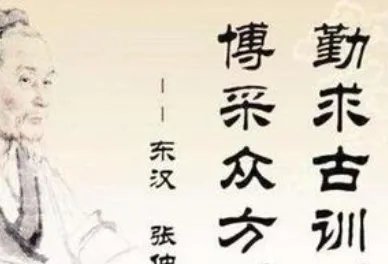 勤求古训
博采众方
——东汉 张仲